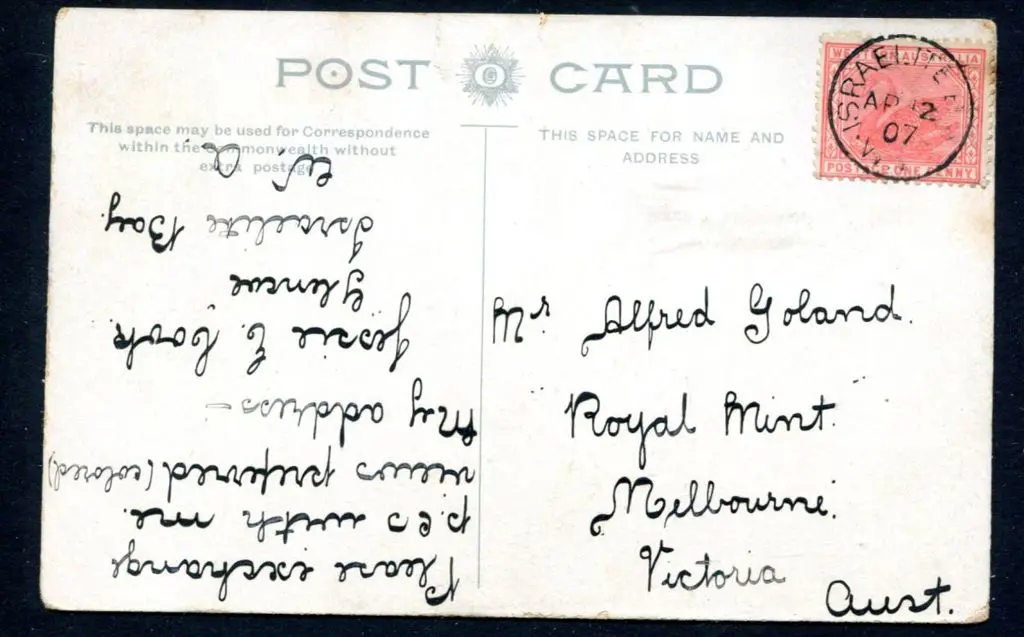 POST CARD
This space may be used for Correspondence
within the Commonwealth without
extra postage
THIS SPACE FOR NAME AND
ADDRESS
WESTERN AUSTRALIA
POSTAGE ONE PENNY
ISRAELITE
AP 12
07
W.
Please exchange
p.cs with me.
views preferred (colored)
My address –
Jessie E. Cook
"Glencoe"
Israelite Bay.
W. A.
Mr Alfred Goland.
Royal Mint.
Melbourne.
Victoria
Aust.